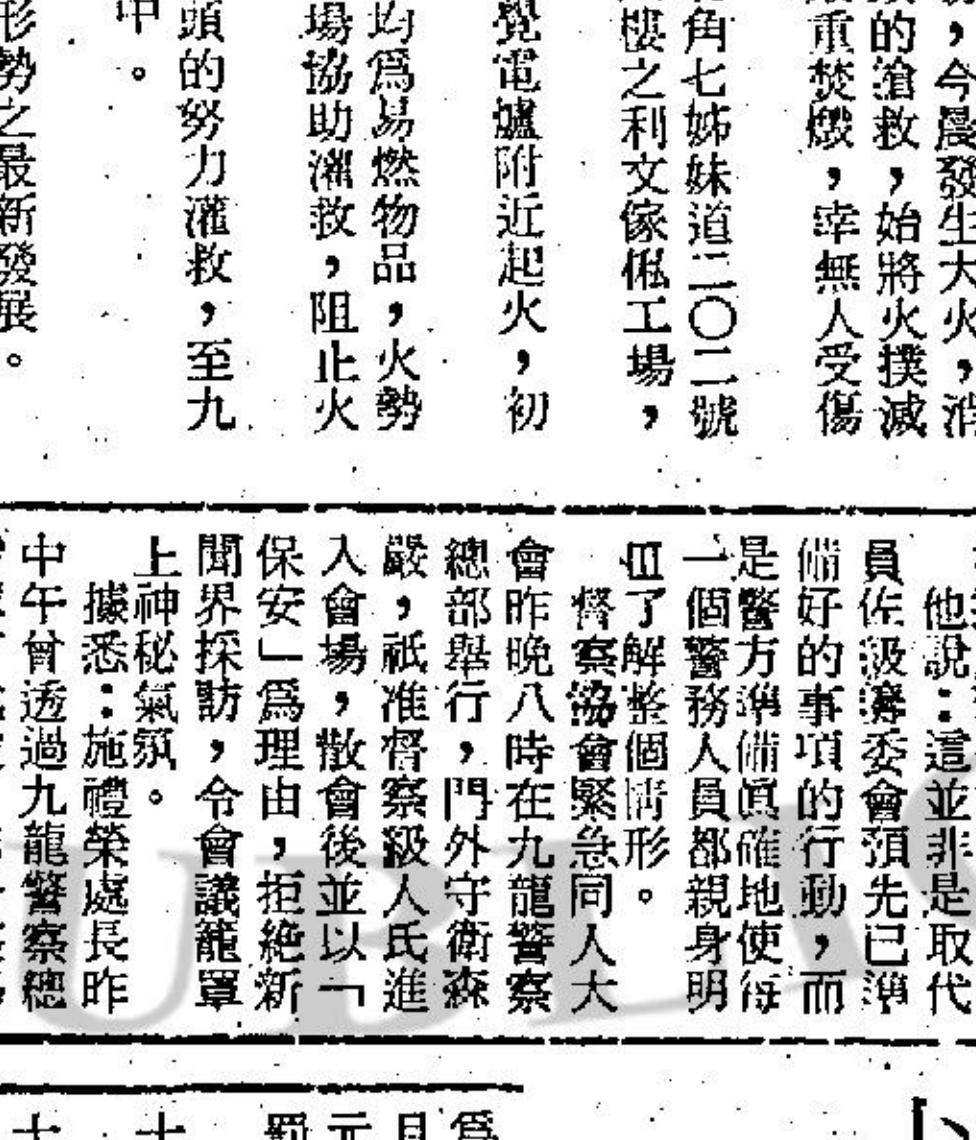 ，今晨發生大火，消
的搶救，始將火撲滅
重焚燬，幸無人受傷
角七姊妹道二〇二號
樓之利文傢俬工場，
覺電爐附近起火，初
均爲易燃物品，火勢
場協助灌救，阻止火
頭的努力灌救，至九
中。
形勢之最新發展。
他說：這並非是取代
員佐級籌委會預先已準
備好的事項的行動，而
是警方準備眞確地使每
一個警務人員都親身明
了解整個情形。
督察協會緊急同人大
會昨晚八時在九龍警察
總部舉行，門外守衛森
嚴，祇准督察級人氏進
入會場，散會後並以「
保安」爲理由，拒絶新
聞界採訪，令會議籠罩
上神秘氣氛。
據悉：施禮榮處長昨
中午曾透過九龍警察總
爲
月
元
罰
十
十
UBLI